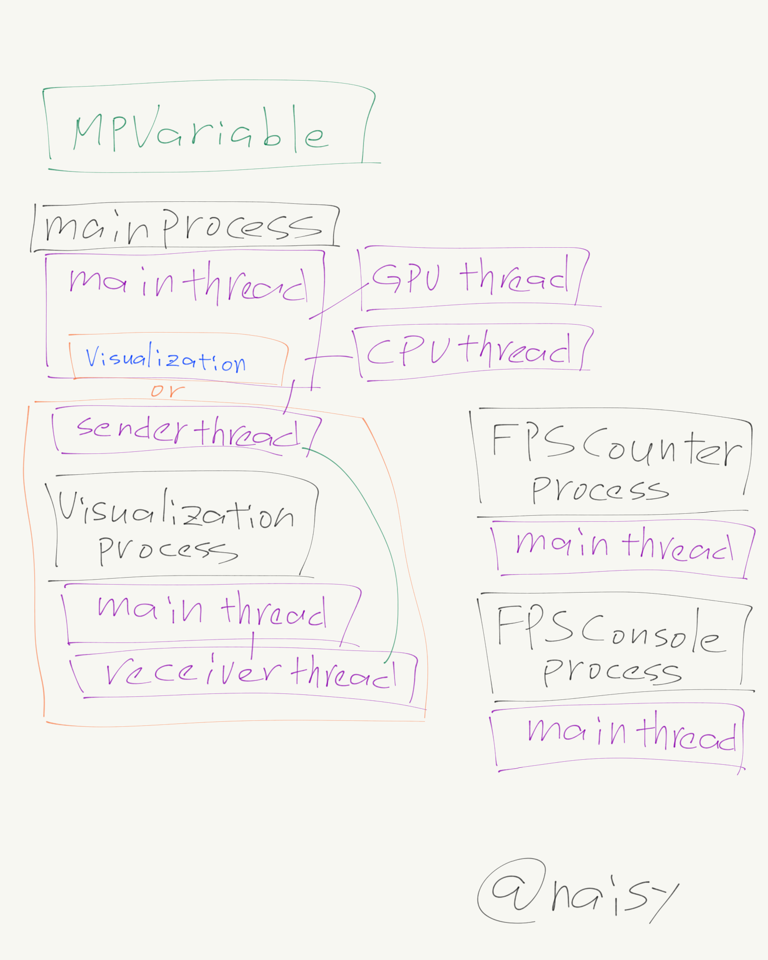 MPVariable
main Process
main thread
GPU thread
Visualization
CPU thread
or
sender thread
Visualization
process
main thread
receiver thread
FPSCounter
process
main thread
FPSConsole
process
main thread
@naisy